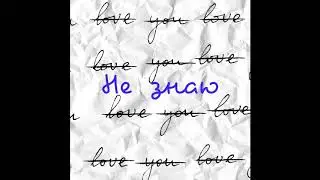 love you love
love you love
Не знаю
love you love
love you love